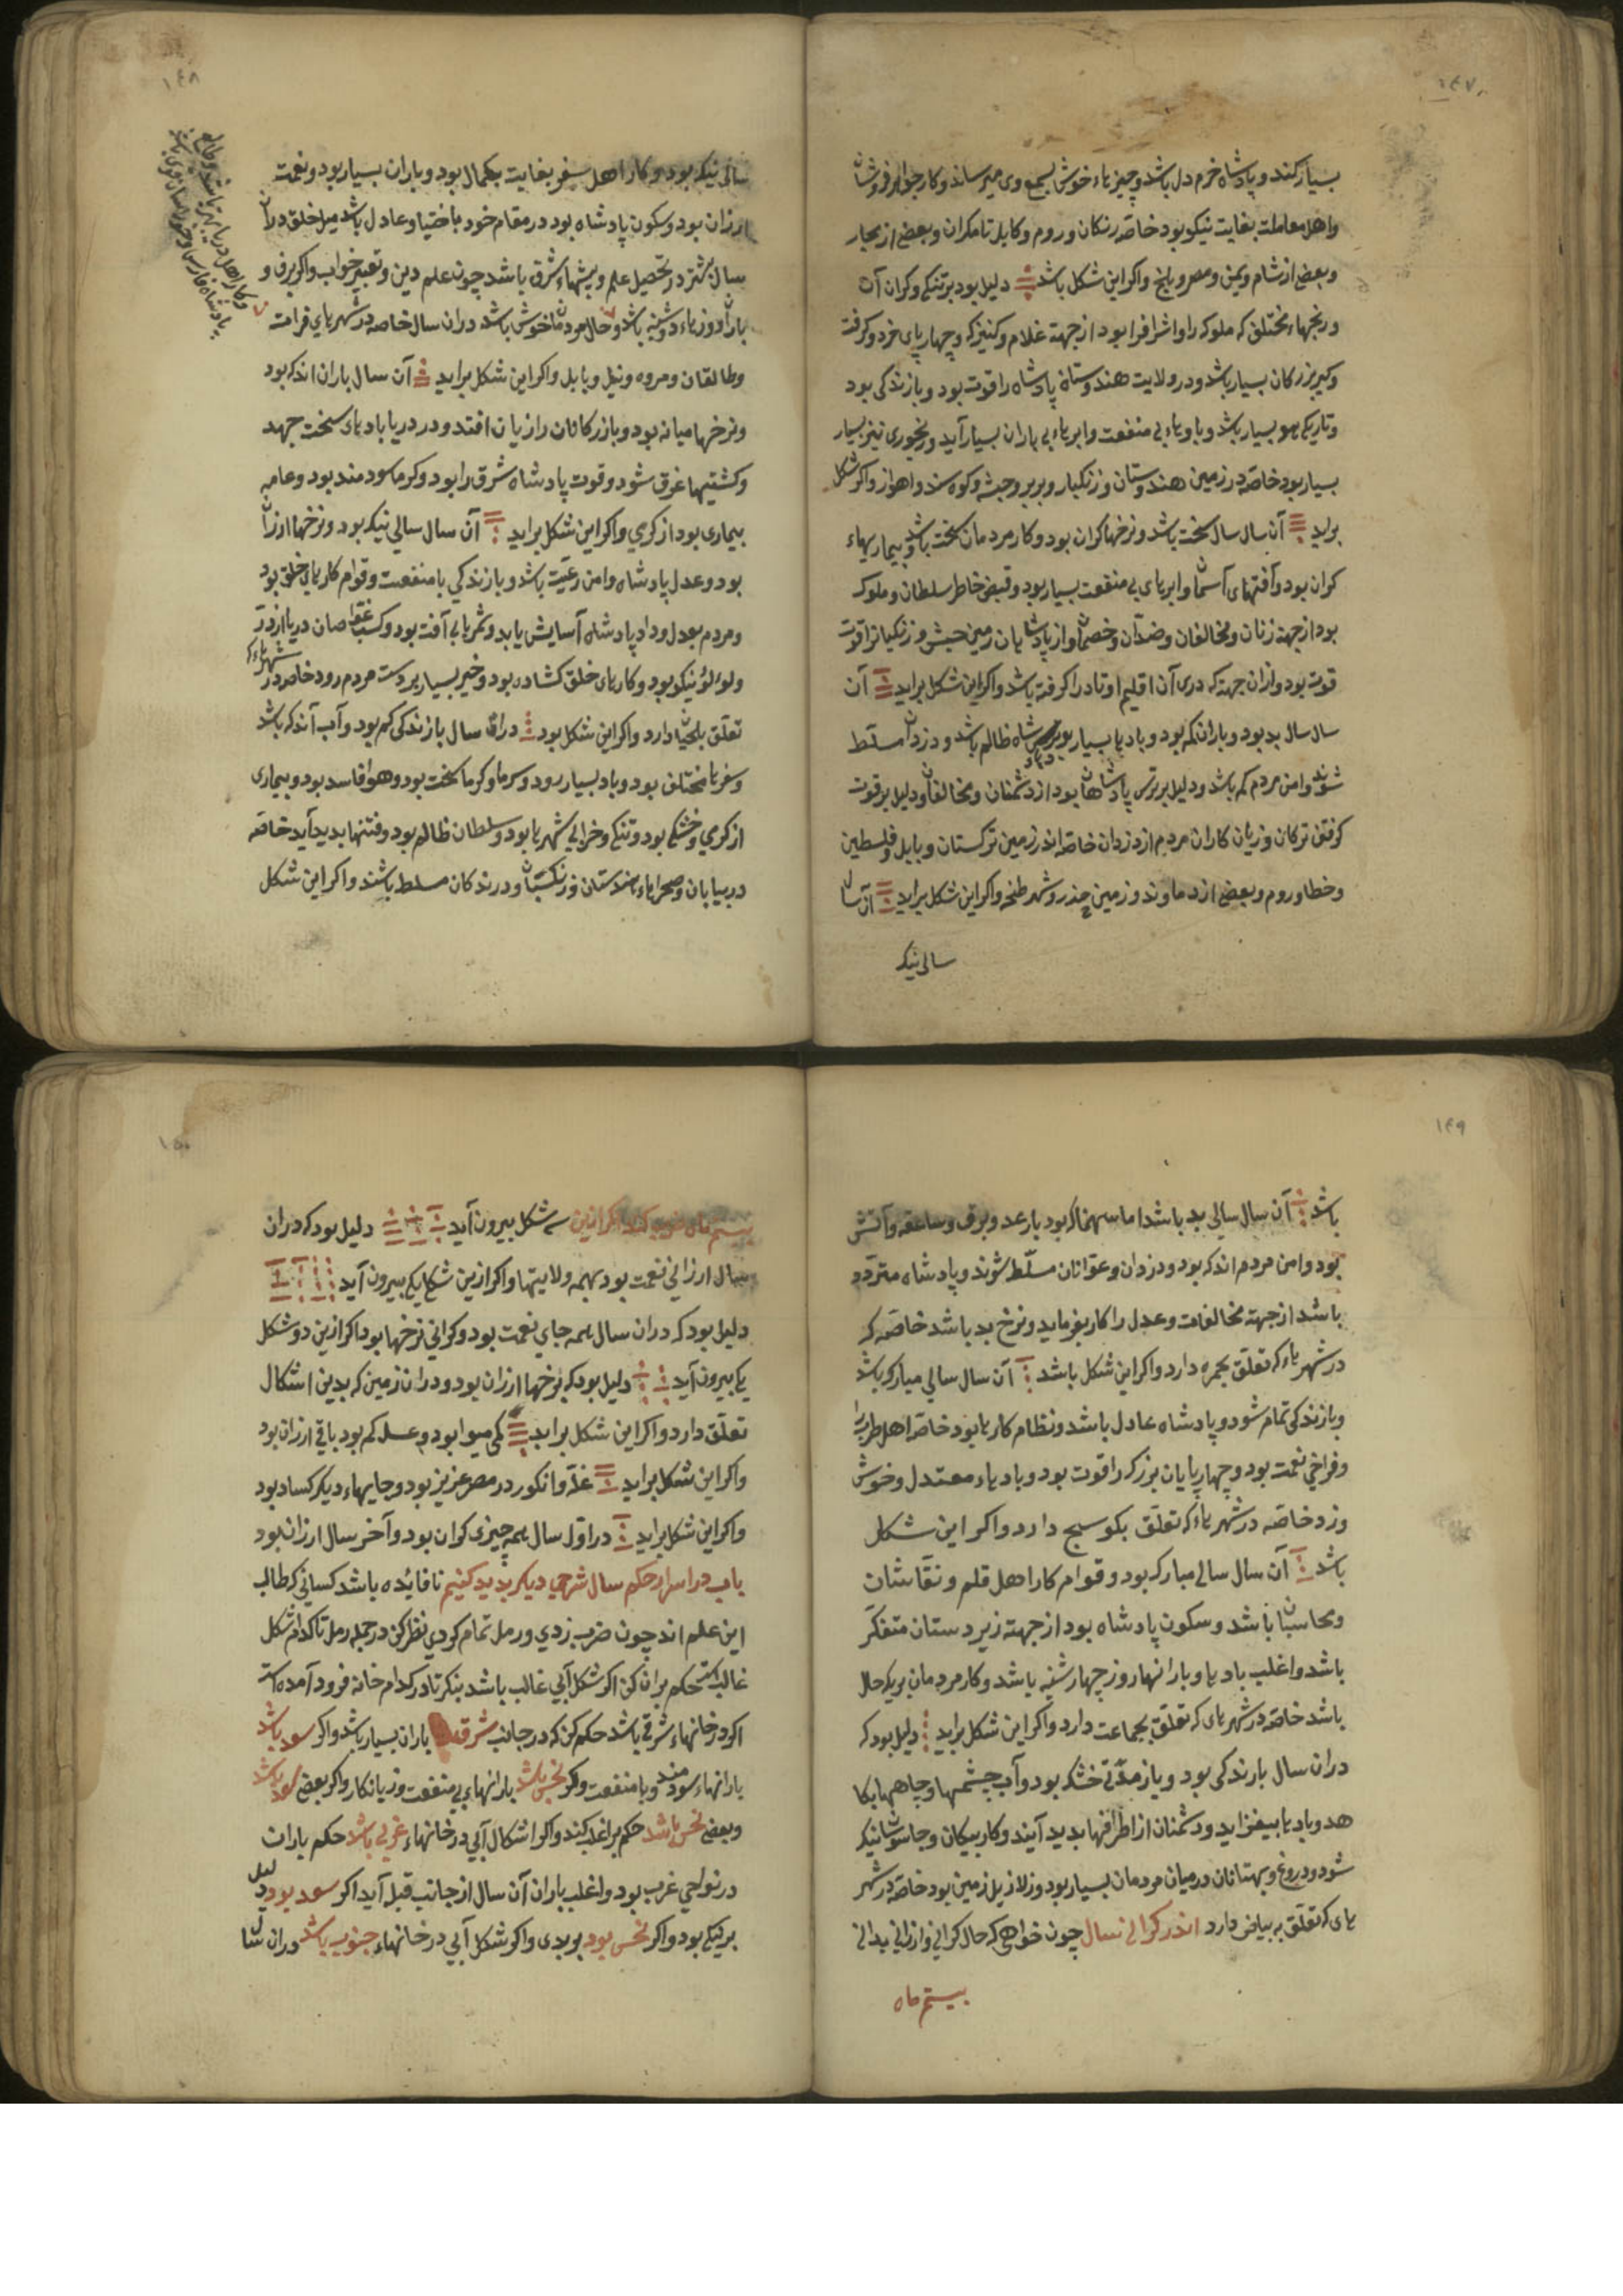 ۱۴۷
بسیار کند و پادشاه خرم دل باشد و چیزهاء خوش بسمع وی میرساند و کار جواهر فروشان
واهل معاملت بغایت نیکو بود خاصه رنکان و روم و کابل تا مکران و بعضی از بحار
و بعضی از شام و یمن و مصر و بلخ واکر این شکل باشد دلیل بود بر تنکی و کران آن
و رنجهاء مختلف که ملوک را و اشراف را بود از جهة غلام و کنیزک و چهارپای خرد و کرفت
بزرکان بسیار باشد و در ولایت هندوستان پادشاه را قوت بود و بازندکی بود
و تاریکی هو بسیار باشد و بادهاء بی منفعت و ابرهاء بی باران بسیار آید و رنجوری نیز بسیار
بسیار بود خاصه در زمین هندوستان و زنکبار و بربر و حبشه و کوه سند و اهواز واکر شکل
براید آن سال سال سخت باشد و نرخها کران بود و کار مردمان سخت باشد و بیماریهاء
کران بود و آفتهای آسمان و ابرهای بی منفعت بسیار بود و قبض خاطر سلطان و ملوک
بود از جهة زنان و مخالفان و ضدان و خصمان و از پادشاهان زمین حبش و زنکیانرا قوت
قوت بود و ازان جهة که دری آن اقلیم اوتاد را کرفته باشد واکر این شکل براید آن
سال سال بد بود و باران کمه بود و بادها بسیار بود پادشاه ظالم باشد و دزدان مسلط
شوند و امن مردم کم باشد و دلیل بر ترس پادشاهان بود از دشمنان و مخالفان و دلیل بر قوت
کرفتن ترکان و زیان کاران مردم از دزدان خاصه اندر زمین ترکستان و بابل و فلسطین
و خطا و روم و بعضی از دماوند و زمین و شهر طنجه واکر این شکل براید آن سال
سالی نیک
۱۴۸
سالی نیک بود و کار اهل سفر بغایت بکمال بود و باران بسیار بود و نعمت
ارزان بود و سکون پادشاه بود در مقام خود باختیار و عادل باشد میل خلق دران
سال بیشتر در تحصیل علم و پیشهاء شرق باشد چون علم دین و تعبیر خواب واکر برف و
باران و وزهاء دوشنبه باشد و حال مردمان خوش باشد دران سال خاصه در شهرهای فرات
وطالقان و مروه و نیل و بابل واکر این شکل براید آن سال باران اندک بود
ونرخها میانه بود و بازرکانان را زیان افتد و در دریا بادهاء سخت جهد
و کشتیها غرق شود و قوت پادشاه شرق را بود و کرما سودمند بود و عامه
بیماری بود از کرمی واکر این شکل براید آن سال سالی نیک بود و نرخها ارزان
بود و عدل پادشاه و امن رعیت باشد و بازندکی با منفعت و قوام کارهای خلق بود
و مردم بعدل و داد پادشاه آسایش یابد و ثمرها بی آفت بود و کسب غواصان دریا از در
و لوءلوء نیکو بود و کارهای خلق کشاده بود و خیر بسیار بر دست مردم رود خاصه در شهرهاء که
تعلق بلحیان دارد واکر این شکل بود دران سال بازندکی کم بود و آب اندک باشد
و سفرها مختلف بود و باد بسیار رود و سرما و کرما سخت بود و هوا فاسد بود و بیماری
از کرمی و خشکی بود و تنکی و خرابی شهرها بود و سلطان ظالم بود و فتنها بدید آید خاصه
در بیابان و صحراهاء هندستان و زنکستان و درندکان مسلط باشند واکر این شکل
۱۴۹
باشد آن سال سالی بد باشد اما سهمناک بود با رعد و برق و صاعقه و آتش
بود و امن مردم اندک بود و دزدان و عوانان مسلط شوند و پادشاه متردد
باشد از جهة مخالفات و عدل را کار بفرماید و نرخ بد باشد خاصه که
در شهرهاء که تعلق بحمره دارد واکر این شکل باشد آن سال سالی مبارک باشد
و بازندکی تمام شود و پادشاه عادل باشد و نظام کارها بود خاصه اهل طرب را
و فراخی نعمت بود و چهارپایان بزرک را قوت بود و بادهاء معتدل و خوش
وزد خاصه در شهرهاء که تعلق بکوسج دارد واکر این شکل
باشد آن سال سالی مبارک بود و قوام کار اهل قلم و نقاشان
و محاسبان باشد و سکون پادشاه بود از جهة زیر دستان متفکر
باشد و اغلب بادها و بارانها روز چهارشنبه باشد و کار مردمان بریک حال
باشد خاصه در شهرهای که تعلق بجماعت دارد واکر این شکل براید دلیل بود که
دران سال بارندکی بود و باز مدتی خشک بود و آب چشمها و چاهها بکا
هد و بادها بیفزاید و دشمنان از اطرافها بدید آیند و کار پیکان و جاسوسان نیک
شود و دروغ و بهتانان درمیان مردمان بسیار بود و زلازیل زمین بود خاصه در شهر
های که تعلق به بیاض دارد اندر کرانی سال چون خواهی که حال کرانی و ارزانی بدانی
بیستم ماه
۱۵۰
بیستم ماه ضرب کند اکر ازین سه شکل بیرون آید دلیل بود که دران
سال ارزانی نعمت بود بهمه ولایتها واکر ازین شکلها یکی بیرون آید
دلیل بود که دران سال همه جای نعمت بود و کرانی نرخها بود اکر ازین دو شکل
یکی بیرون آید دلیل بود که نرخها ارزان بود و دران زمین که بدین اشکال
تعلق دارد واکر این شکل براید کمی میوا بود و عسل کم بود باقی ارزان بود
واکر این شکل براید غله و انکور در مصر عزیز بود و جایهاء دیکر کساد بود
واکر این شکل براید در اول سال همه چیزی کران بود و آخر سال ارزان بود
باب در اسرار حکم سال شرحی دیکر بدید کنیم تا فائده باشد کسانی که طالب
این علم اند چون ضرب زدی و رمل تمام کردی نظر کن در جمله رمل تا کدام شکل
غالب است حکم بران کن اکر شکل آبی غالب باشد بنکر تا در کدام خانه فرود آمده است
اکر در خانهاء شرقی باشد حکم کن که در جانب شرق باران بسیار باشد واکر سعد باشد
بارانهاء سودمند و با منفعت واکر نحس باشد بارانهاء بی منفعت و زیانکار واکر بعضی سعد باشد
و بعضی نحس باشد حکم بر اغلب کند واکر اشکال آبی در خانهاء غربی باشد حکم باران
در نواحی غرب بود و اغلب باران آن سال از جانب قبله آید اکر سعد بود دلیل
بر نیکی بود واکر نحس بود بر بدی واکر شکل آبی در خانهاء جنوب باشد دران سال